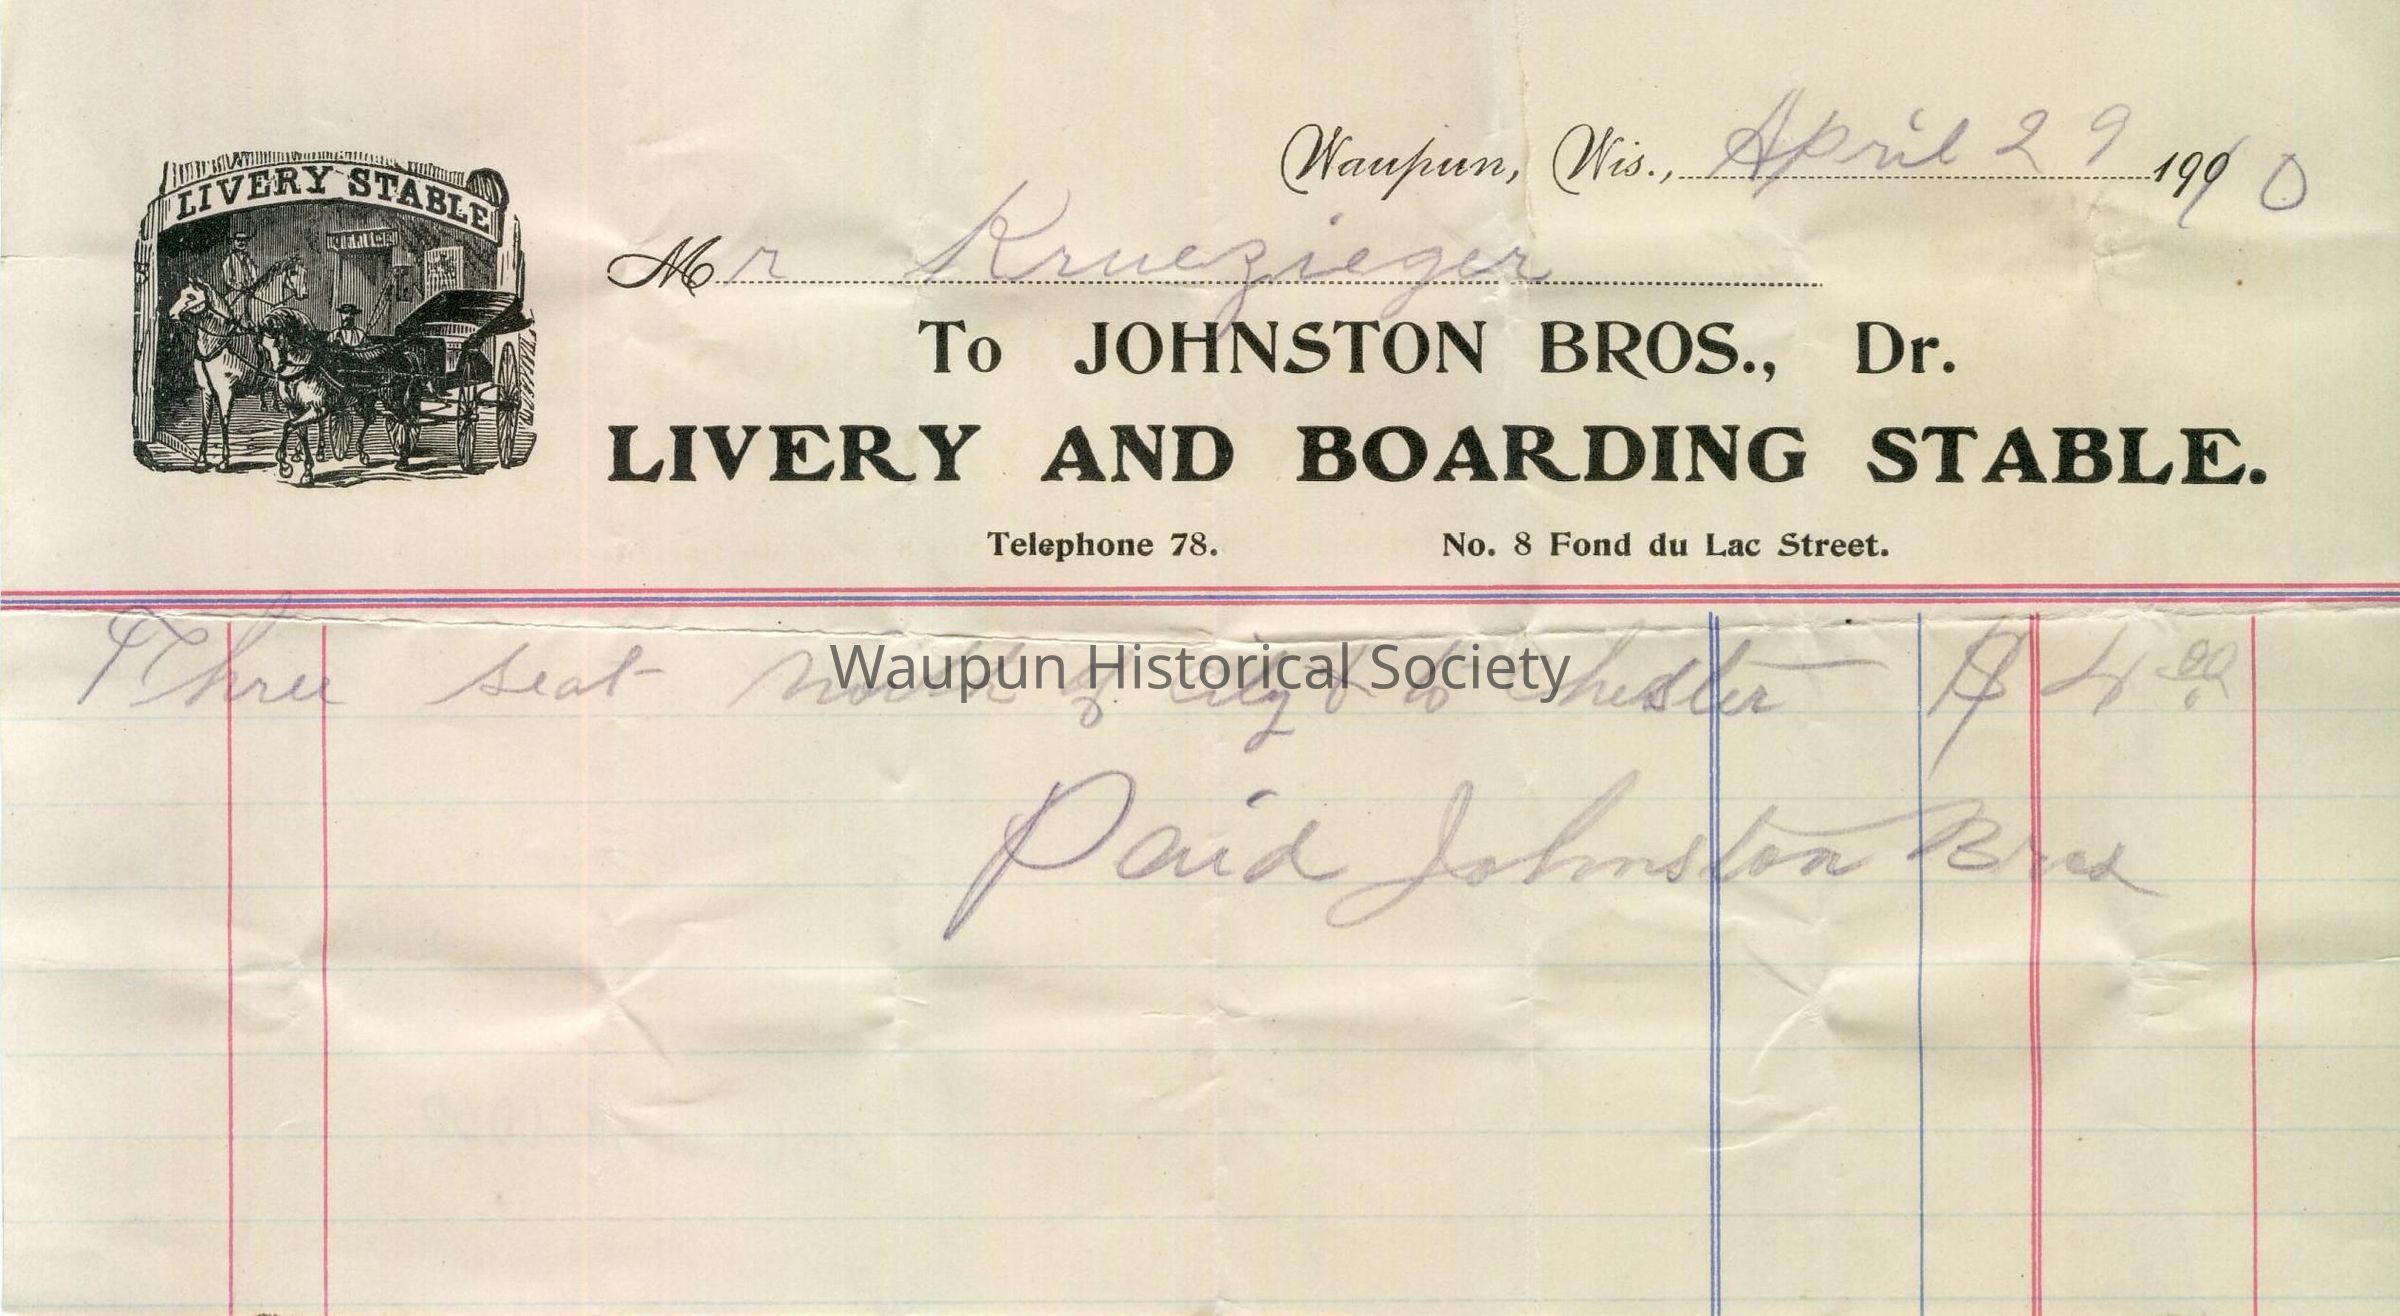 LIVERY STABLE
Waupun, Wis., April 29 1910
Mr Kruezieger
To JOHNSTON BROS., Dr.
LIVERY AND BOARDING STABLE.
Telephone 78. No. 8 Fond du Lac Street.
Three seat north of city & to Chester $ 4 00
Waupun Historical Society
Paid Johnston Bros